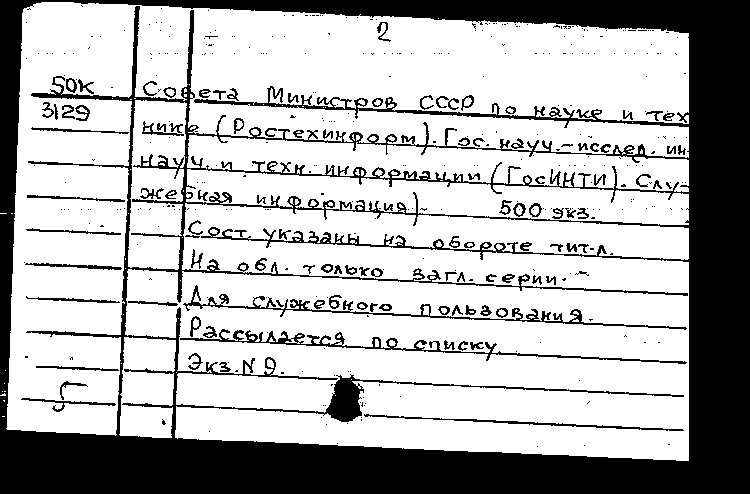 2
50К Совета Министров СССР по науке и тех
3129
нике (Ростехинформ). Гос. науч.-исслед. ин
науч. и техн. информации (ГосИНТИ). Слу-
жебная информация)- 500 экз.
Сост. указаны на обороте тит.л.
На обл. только загл. серии.-
Для служебного пользования.
Рассылается по списку
Экз. N 9.